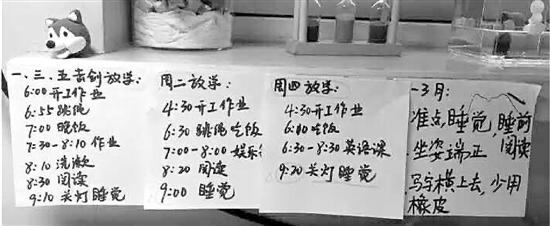 一.三.五音剑放学:
6:00开工作业
6:55跳绳
7:00晚饭
7:30-8:10作业
8:10洗漱
8:30阅读
9:10关灯睡觉
周二放学:
4:30开工作业
6:30跳绳吃饭
7:00-8:00娱乐
8:20阅读
9:00睡觉
周四放学:
4:30开工作业
6:00吃饭
6:30-8:30英语课
9:20关灯睡觉
-3月:
准点睡觉,睡前
阅读
坐姿端正
写字横上去,少用
橡皮